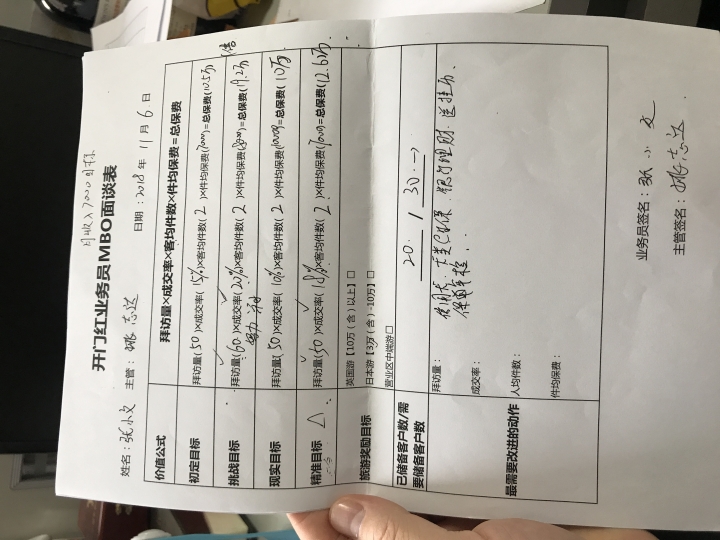 月收入7000目标
开门红业务员MBO面谈表
姓名：张小文 主管：姚志达 日期：2018年11月6日
价值公式 拜访量×成交率×客均件数×件均保费=总保费
初定目标 拜访量(50)×成交率(15%)×客均件数(2)×件均保费(7000)=总保费(10.5万)
挑战目标 拜访量(60)×成交率(20%)×客均件数(2)×件均保费(8000)=总保费(19.2万)
现实目标 拜访量(50)×成交率(10%)×客均件数(2)×件均保费(10000)=总保费(10万)
精准目标 拜访量(50)×成交率(18%)×客均件数(2)×件均保费(7000)=总保费(12.6万)
旅游奖励目标
英国游【10万（含）以上】□
日本游【3万（含）-10万】□
营业区中端游□
已储备客户数/需要储备客户数 20 / 30
最需要改进的动作
拜访量：
成交率：
人均件数：
件均保费：
业务员签名：张小文
主管签名：姚志达